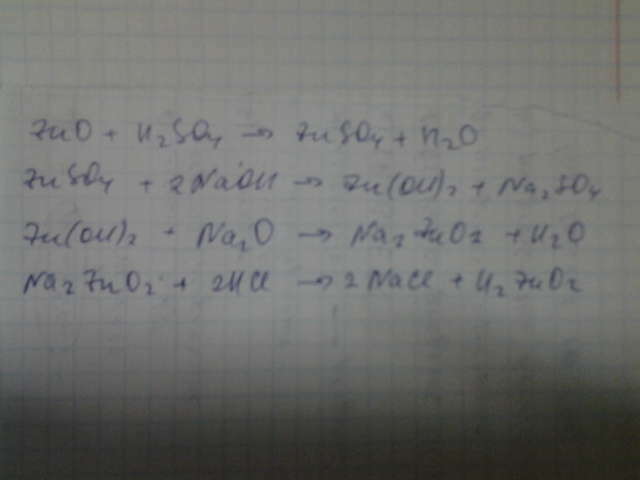 ZnO + H₂SO₄ → ZnSO₄ + H₂O
ZnSO₄ + 2NaOH → Zn(OH)₂ + Na₂SO₄
Zn(OH)₂ + Na₂O → Na₂ZnO₂ + H₂O
Na₂ZnO₂ + 2HCl → 2NaCl + H₂ZnO₂